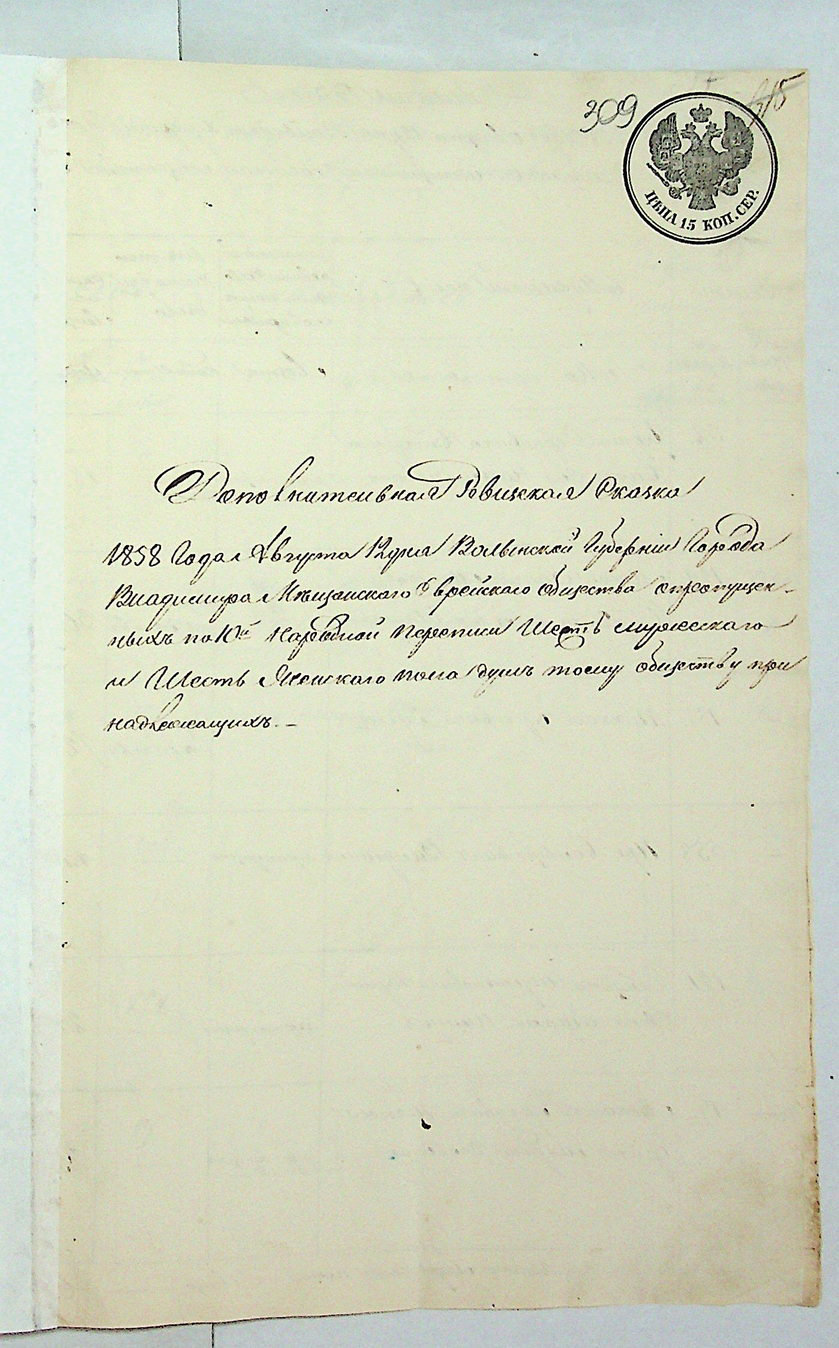 309
615
ЦѢНА 15 КОП. СЕР.
Дополнительная Ревизская Сказка
1858 Года Августа дня Волынской Губерніи Города
Владимира Мѣщанского Еврейского общества о пропущен-
ныхъ по Народной переписи Шесть мужеского
и Шесть Женского пола душъ тому обществу при
надлежащихъ. –